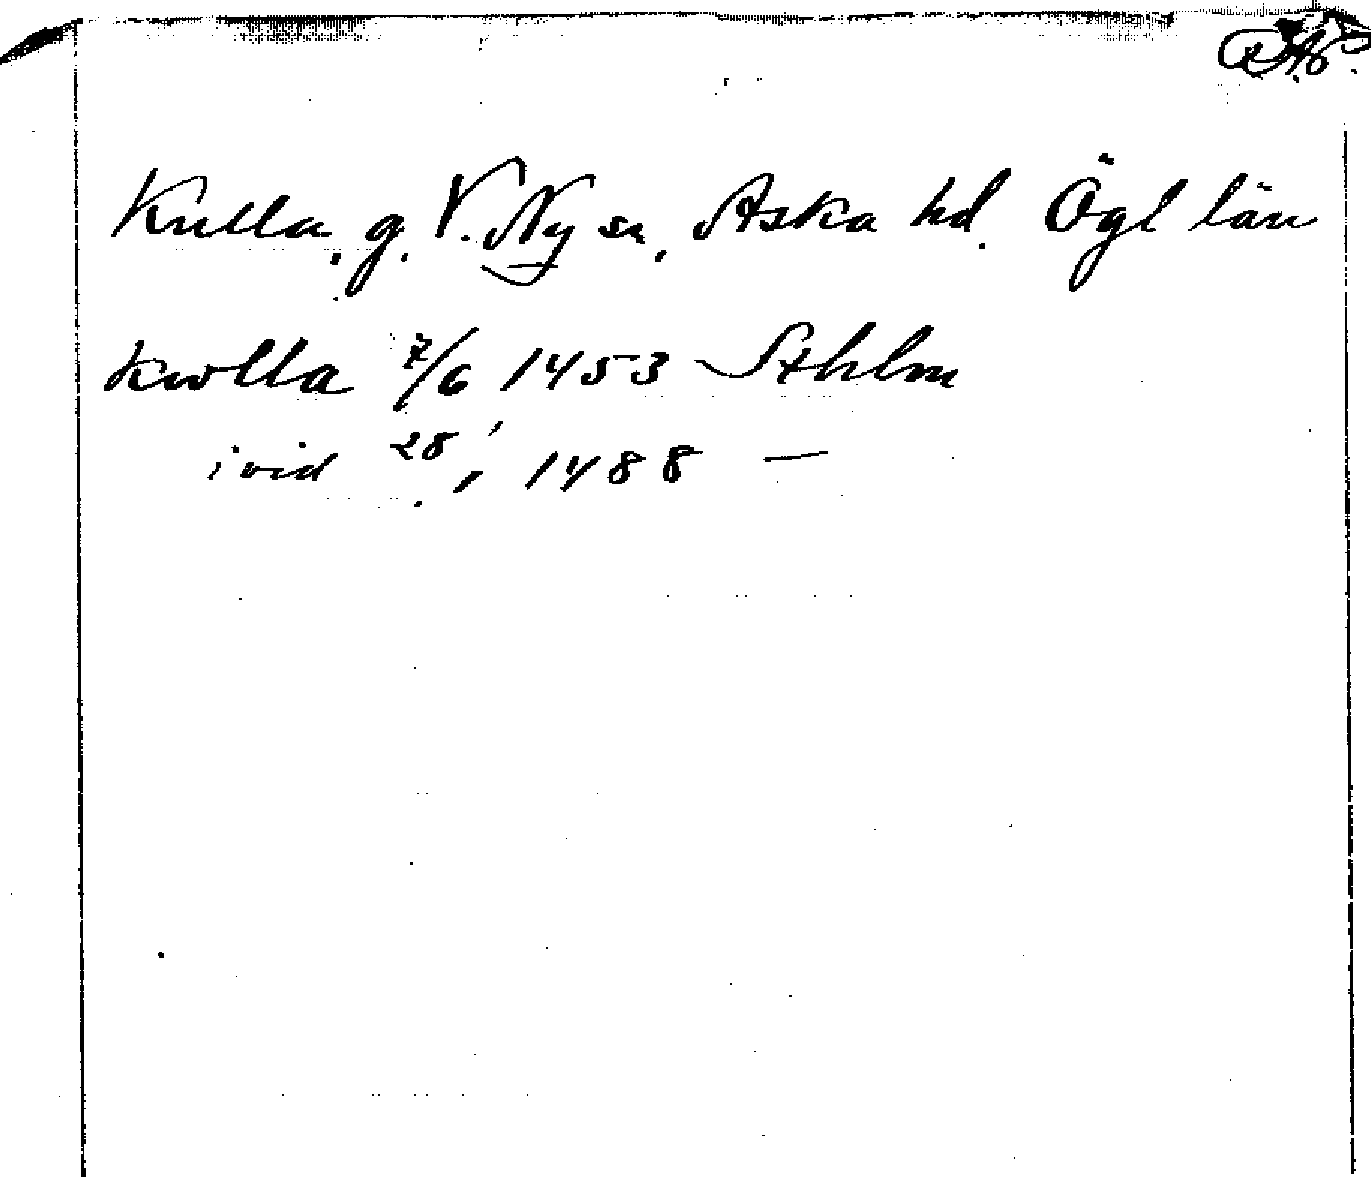 Kulla, g. V. Ny sn, Aska hd. Ögl län
kwlla 7/6 1453 Sthlm
ivid 28/ 1488 —